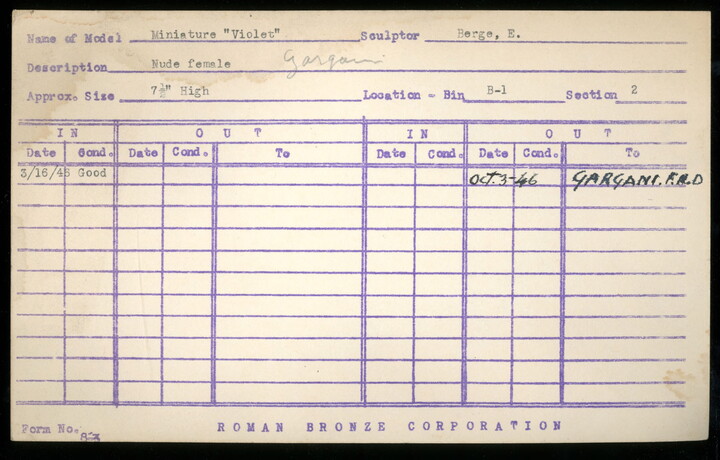 Name of Model Miniature "Violet" Sculptor Berge, E.
Description Nude female Gargani
Approx. Size 7½" High Location - Bin B-1 Section 2
IN OUT IN OUT
Date Cond. Date Cond. To Date Cond. Date Cond. To
3/16/46 Good OCT. 3-46 GARGANI. F.R.D
Form No. ROMAN BRONZE CORPORATION